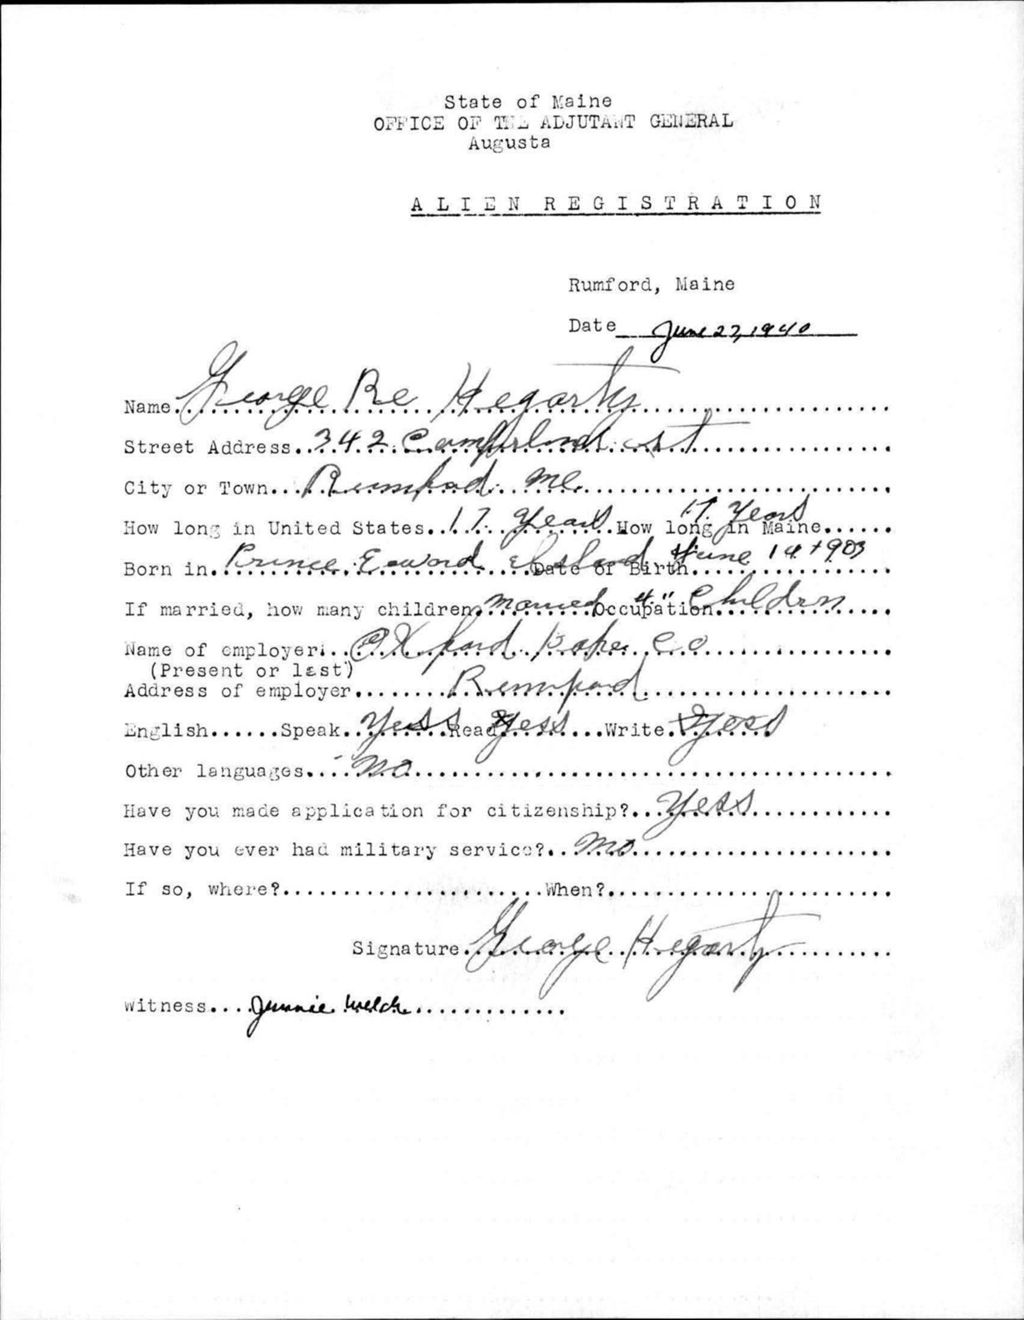 State of Maine
OFFICE OF THE ADJUTANT GENERAL
Augusta
ALIEN REGISTRATION
Rumford, Maine
Date June 27, 1940
Name George Re Hegarty
Street Address 342 st
City or Town Rumford Me
How long in United States 17 Years How long in Maine 17 Years
Born in Prince Edward Island Date of Birth June 14 1903
If married, how many children married 4 Children Occupation
Name of employer Oxford Paper Co
(Present or last)
Address of employer Rumford
English Speak Yess Read Yess Write Yess
Other languages no
Have you made application for citizenship? Yess
Have you ever had military service? no
If so, where? When?
Signature George Hegarty
Witness Jennie Welch